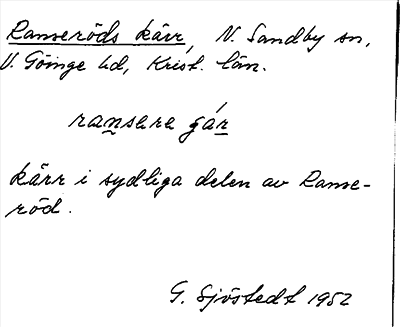 Ranseröds kärr, N. Sandby sn,
V. Göinge hd, Krist. län.
ransera gár
kärr i sydliga delen av Ranse-
röd.
G. Sjöstedt 1952